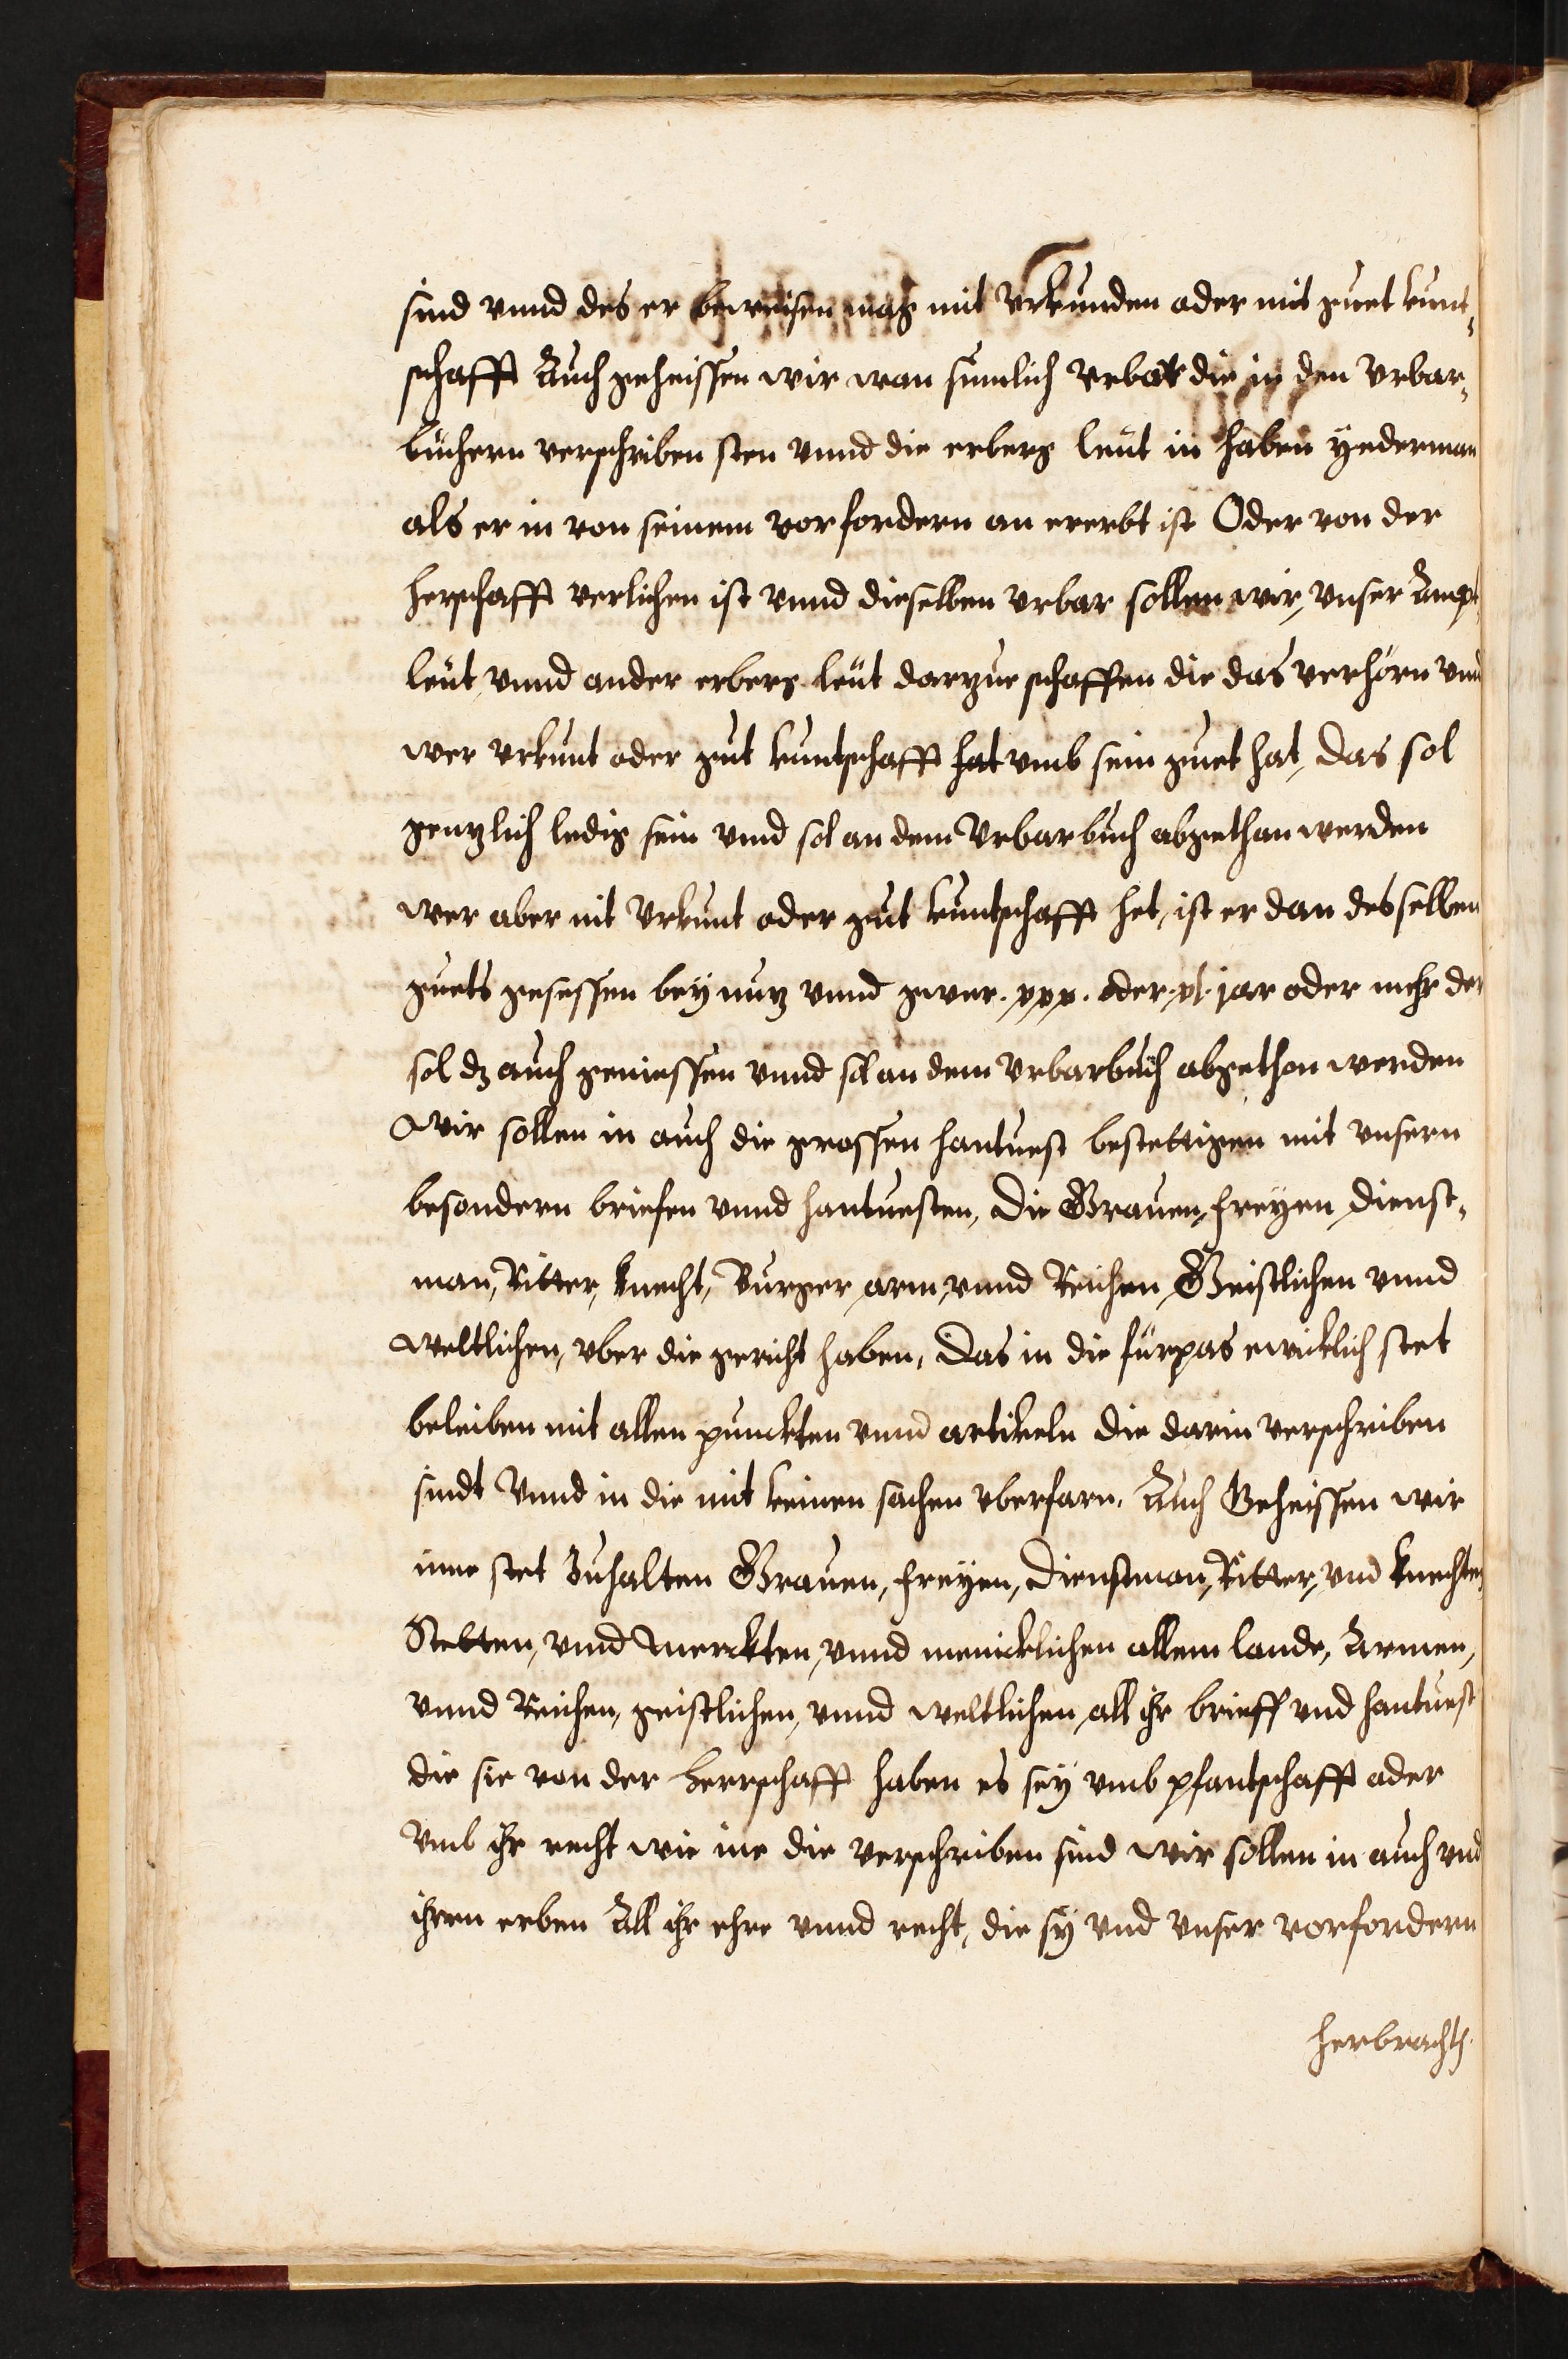 sind vnnd des er beweisen mag mit Vrkunden oder mit guet kunt,
schafft Auch geheissen wir wan sumlich Vrbar die in den Vrbar,
büchern verschriben sten vnnd die erberg leut in haben yederman
als er in von seinem vorfordern an ererbt ist Oder von der
herschafft verlichen ist vnnd dieselben vrbar sollen wir, vnser Ampt
leut, vnnd ander erberg leut darzue schaffen die das verhörn vnnd
wer vrkunt oder gut kuntschafft hat vmb sein guet hat, das sol
gentzlich ledig sein vnnd sol an dem Vrbarbuch abgethan werden
wer aber nit Vrkunt oder gut kuntschafft het, ist er dan desselben
guets gesessen bey nutz vnnd gwer .xxx. oder .xl. jar oder mehr der
sol dz auch geniessen vnnd sol an dem Vrbarbuch abgethon werden
Wir sollen in auch die grossen hantuest bestettigen mit vnsern
besondern briefen vnnd hantuesten, die Grauen, freyen, dienst,
man, Ritter, knecht, Burger, arm, vnnd Reichen, Geistlichen vnnd
Weltlichen, vber die gericht haben, das in die fürpas ewicklich stet
beleiben mit allen punckten vnnd artikeln die darin verschriben
sindt Vnnd in die mit keinen sachen vberfarn. Auch Geheissen wir
inne stet Zuhalten Grauen, freyen, dienstman, Ritter, vnd knechten
Stetten, vnnd Merckten, vnnd menicklichen allem lande, Armen,
vnnd Reichen, geistlichen, vnnd weltlichen, all ihr brieff vnd hantuest
die sie von der Herrschafft haben es sey vmb pfantschafft oder
Vmb ihr recht wie ine die verschriben sind wir sollen in auch vnd
ihren erben All ihr ehre vnnd recht, die sy vnd vnser vorfordern
herbracht.